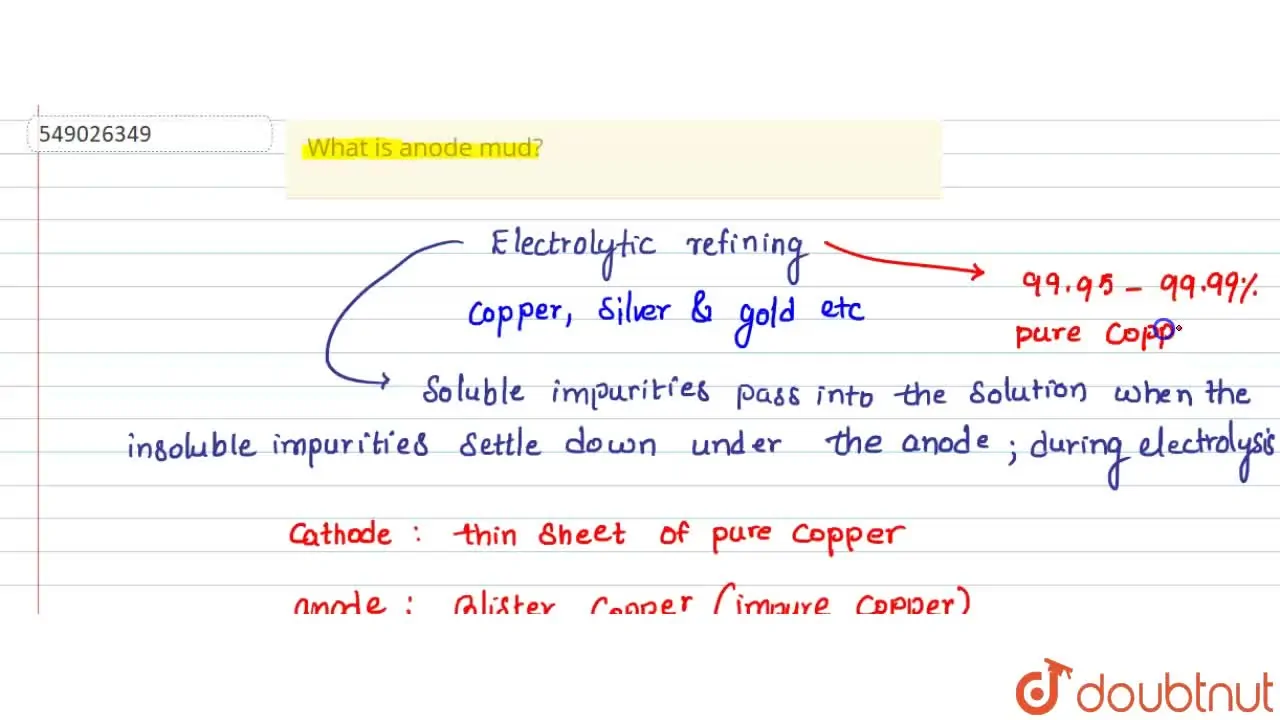 549026349
What is anode mud?
Electrolytic refining
Copper, Silver & gold etc
99.95 - 99.99%
pure Copp
Soluble impurities pass into the solution when the
insoluble impurities settle down under the anode ; during electrolysis
Cathode : thin sheet of pure copper
anode : Blister Copper (impure copper)
doubtnut